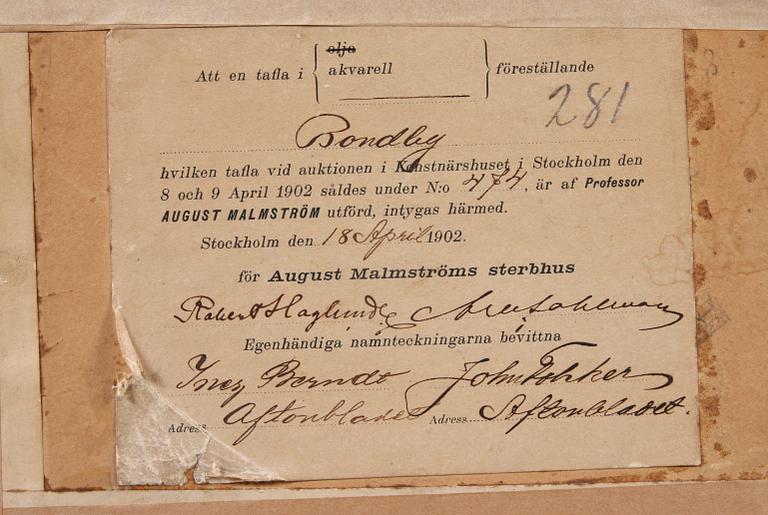 olja
Att en tafla i akvarell föreställande
281
Bondby
hvilken tafla vid auktionen i Konstnärshuset i Stockholm den
8 och 9 April 1902 såldes under N:o 474, är af Professor
AUGUST MALMSTRÖM utförd, intygas härmed.
Stockholm den 18 April 1902.
för August Malmströms sterbhus
Robert Haglund
Egenhändiga namnteckningarna bevittna
Inez Berndt John Fokker
Adress Aftonbladet Adress Aftonbladet.